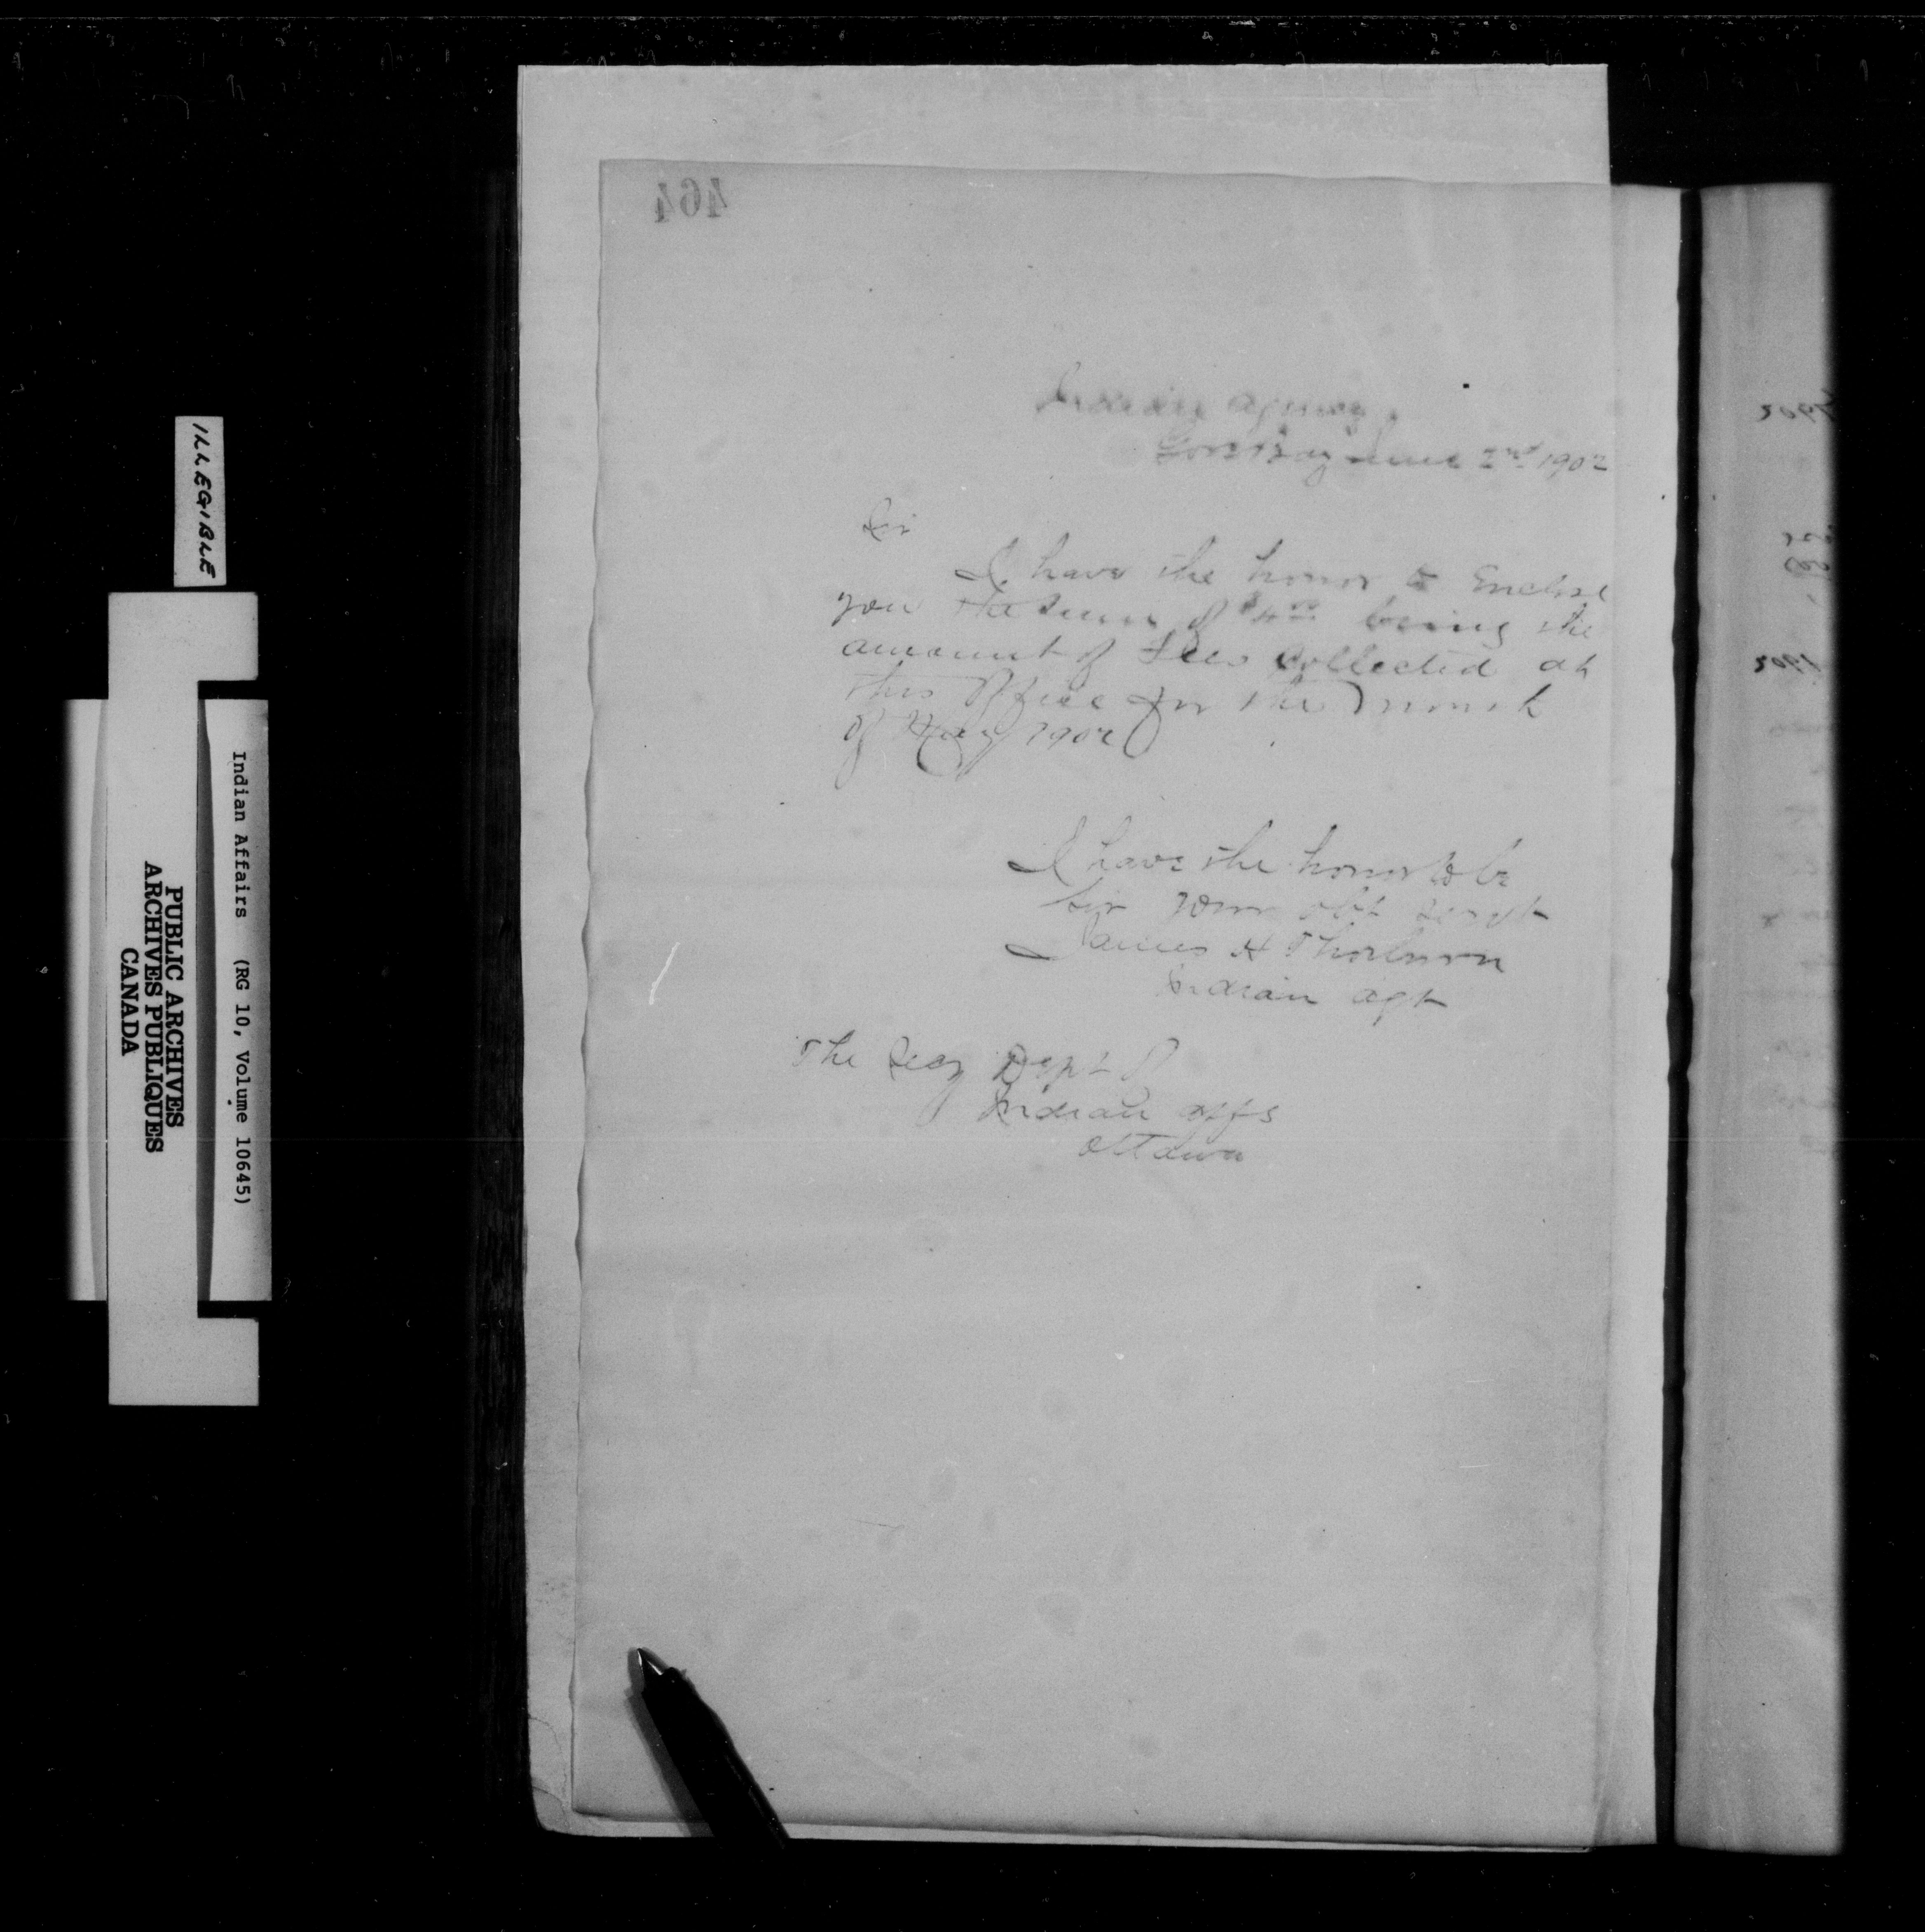 464
Indian Agency
Gore Bay June 2nd 1902
Sir
I have the honor to Enclose
you the sum of $4.00 being the
amount of Fees Collected at
this Office for the month
of May 1902
I have the honor to be
Sir your obt servt
James H Thorburn
Indian agt
The Secy Dept of
Indian affs
Ottawa
1902
1902
ILLEGIBLE
Indian Affairs (RG 10, Volume 10645)
PUBLIC ARCHIVES
ARCHIVES PUBLIQUES
CANADA